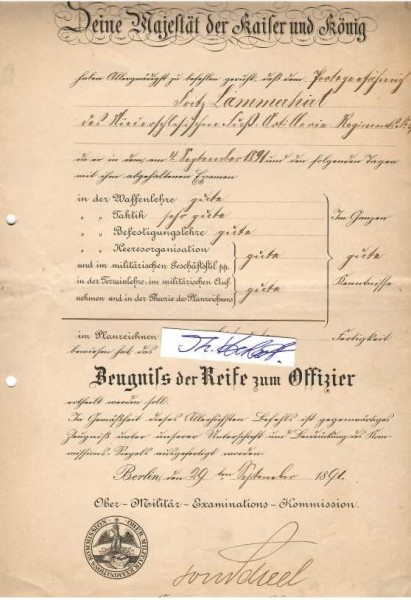 Seine Majestät der Kaiser und König
haben Allergnädigst zu befehlen geruht, daß dem Portepeefähnrich
Fritz Lämmerhirt
des Niederschlesischen Fuß-Artillerie-Regiments
da er in dem, am 4. September 1891 und den folgenden Tagen
mit ihm abgehaltenen Examen
in der Waffenlehre gute
„ „ Taktik sehr gute
„ „ Befestigungslehre gute
„ „ Heeresorganisation
und im militärischen Geschäftsstil pp. gute
in der Terrainlehre, im militärischen Auf-
nehmen und in der Theorie des Planzeichnens gute
Im Ganzen
gute
Kenntnisse
im Planzeichnen Fertigkeit
bewiesen hat das
Zeugniss der Reife zum Offizier
ertheilt werden soll.
In Gemäßheit dieses Allerhöchsten Befehls ist gegenwärtiges
Zeugniß unter unserer Unterschrift und Beidrückung des Kom-
missions-Siegels ausgefertigt worden.
Berlin, den 29ten September 1891.
Ober-Militär-Examinations-Kommission.
OBER MILITAIR EXAMINATIONS KOMMISSION